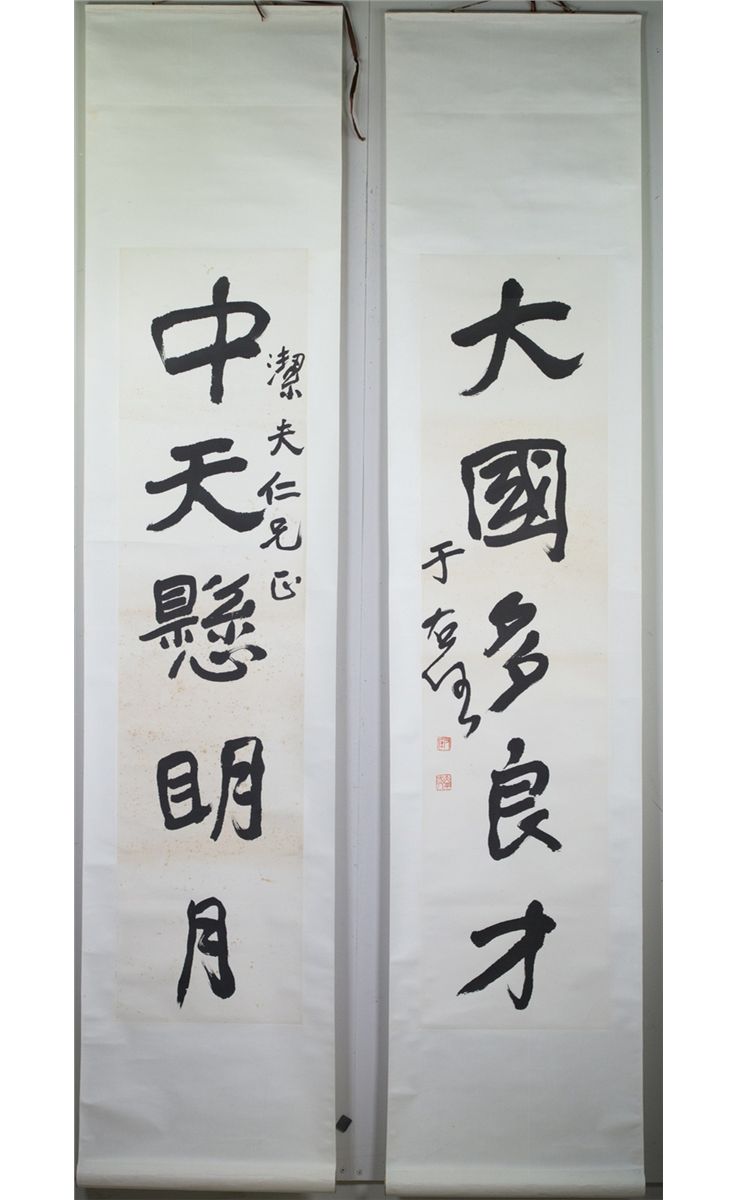 大國多良才
于右任
潔夫仁兄正
中天懸明月